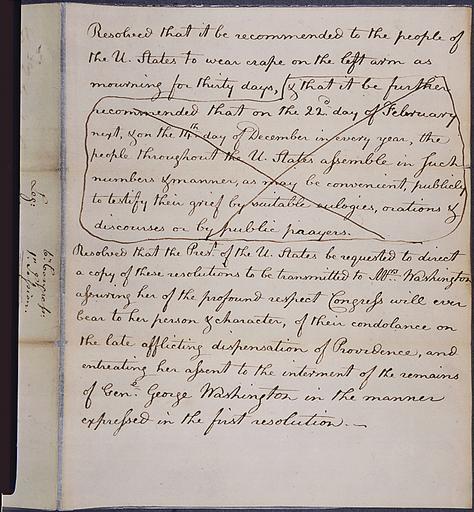 Resolved that it be recommended to the people of
the U. States to wear crape on the left arm as
mourning for thirty days, & that it be further
recommended that on the 22d day of February
next, & on the 14th day of December in every year, the
people throughout the U. States assemble in such
numbers & manner, as may be convenient, publicly
to testify their grief by suitable eulogies, orations &
discourses or by public praayers.
Resolved that the Prest. of the U. States be requested to direct
a copy of these resolutions to be transmitted to Mrs. Washington
assuring her of the profound respect Congress will ever
bear to her person & character, of their condolance on
the late afflicting dispensation of Providence, and
entreating her assent to the interment of the remains
of Genl. George Washington in the manner
expressed in the first resolution.—
6th Congress